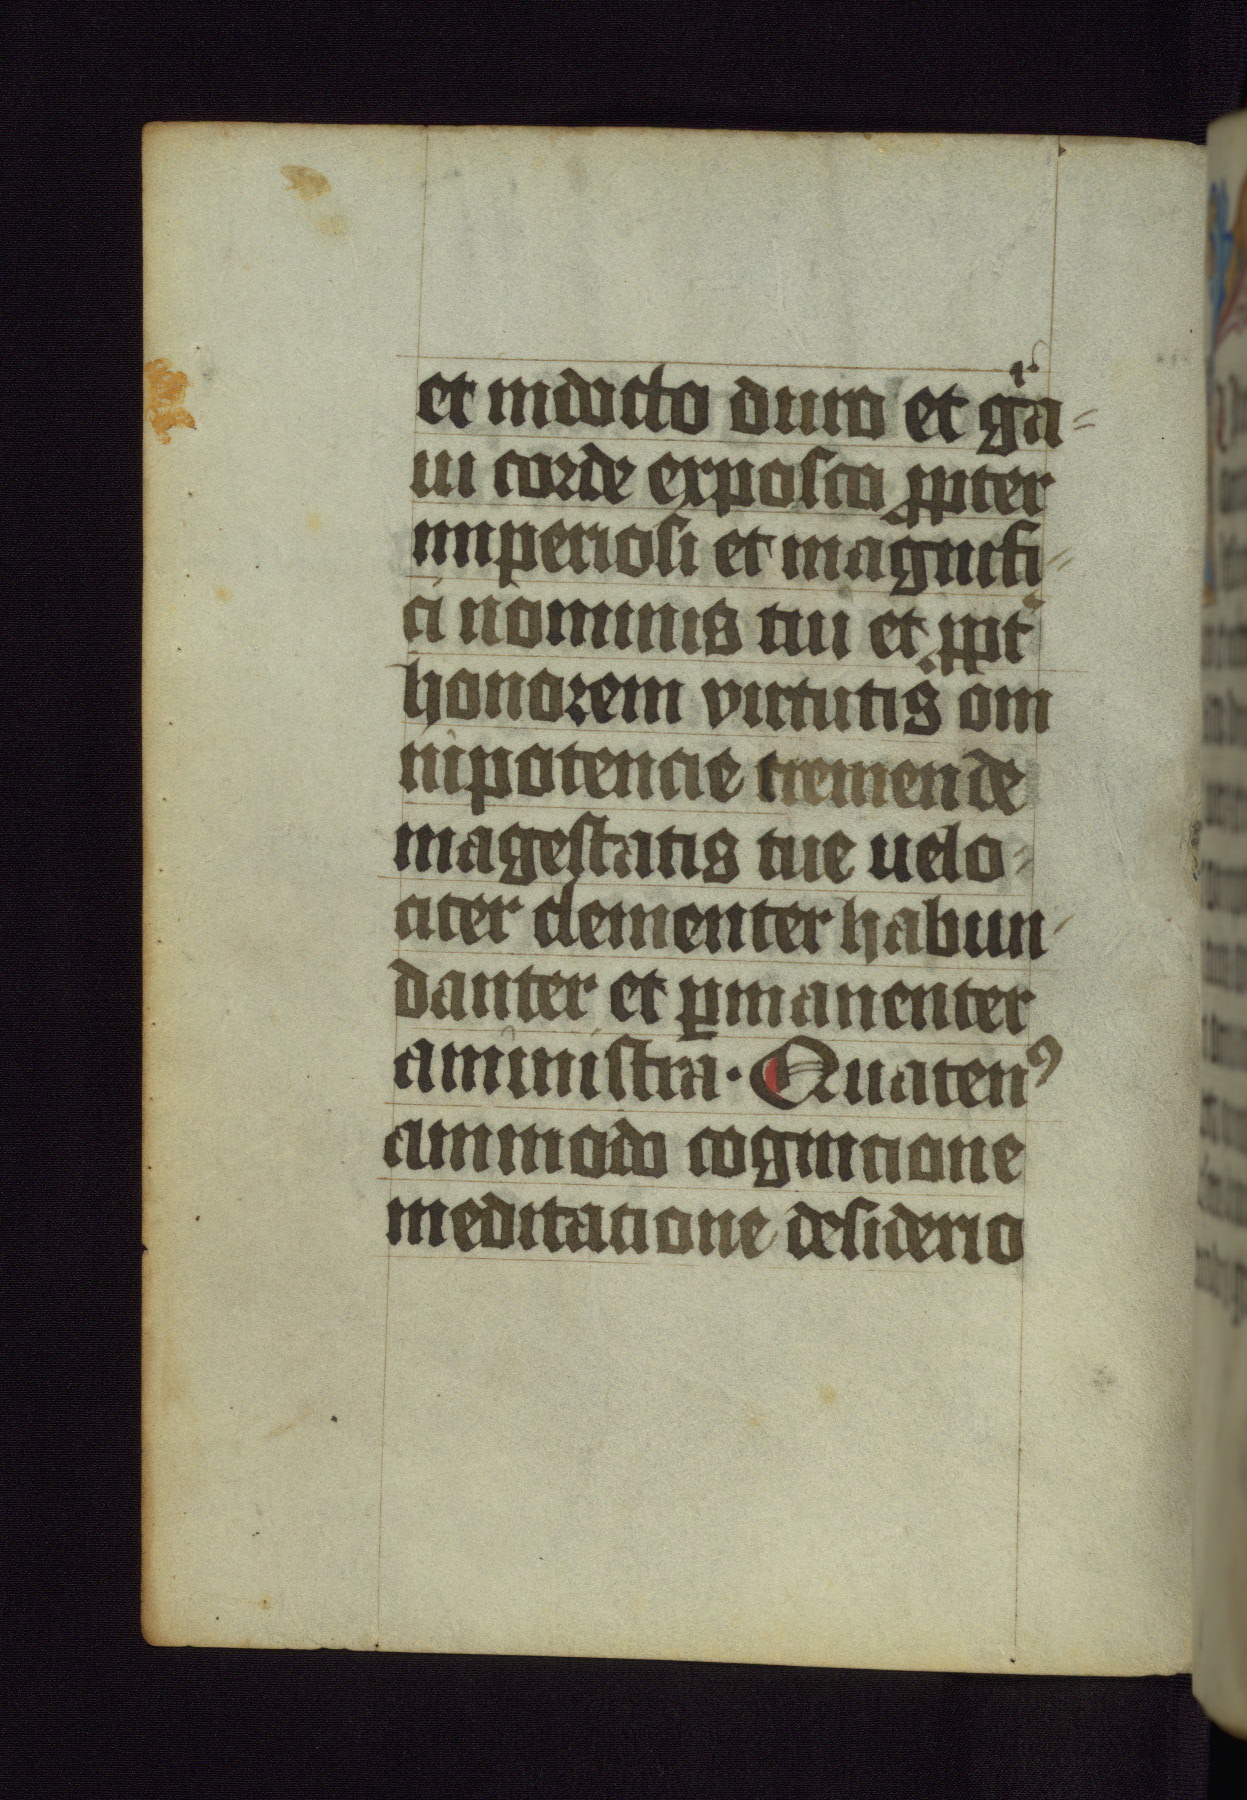 et indocto duro et gͣa-
ui corde exposco ꝓpter
imperiosi et magnifi-
ci nominis tui et ꝓpt᷑
honorem virtutis om
nipotencie tremende
magestatis tue uelo-
citer clementer habun-
danter et ꝑmanenter
aministra. Quatenꝰ
ammodo cognicione
meditatione desiderio